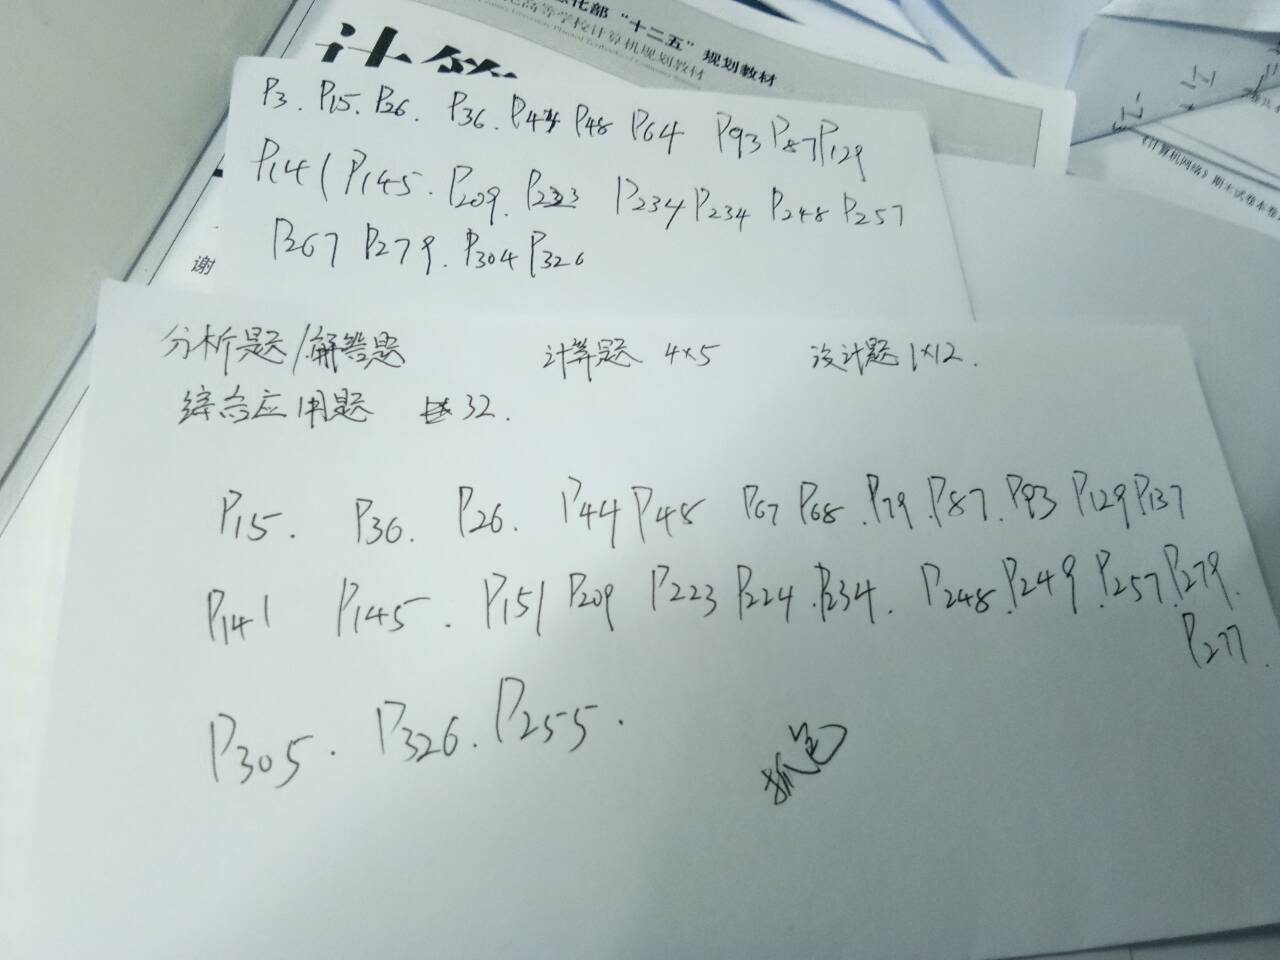 息化部“十二五”规划教材
高等学校计算机规划教材
计算
P3. P15. P26. P36. P44 P48 P64 P93 P87 P129
P141 P145. P209. P223 P234 P234 P248 P257
P267 P279. P304 P326
谢
《计算机网络》期末试卷本卷
分析题/解答题 计算题 4×5 设计题 1×12.
综合应用题 32.
P15. P36. P26. P44 P48 P67 P68. P79. P87. P93 P129 P137
P141 P145. P151 P209 P223 P224. P234. P248. P249. P257. P279.
P277.
P305. P326. P255.
抓包